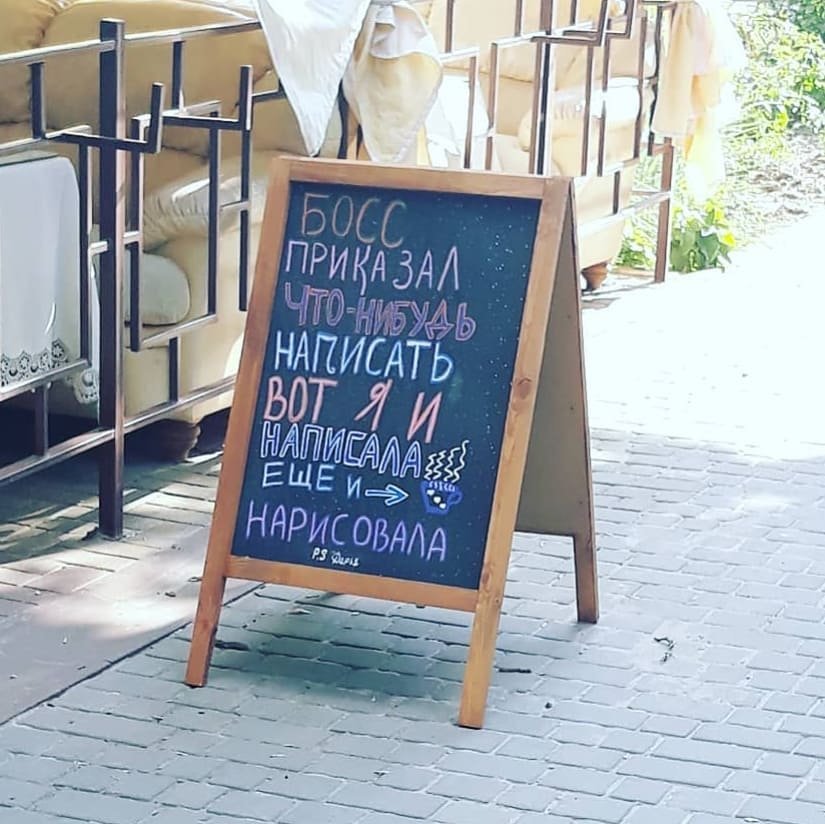 БОСС
ПРИКАЗАЛ
ЧТО-НИБУДЬ
НАПИСАТЬ
ВОТ Я И
НАПИСАЛА
ЕЩЕ И →
НАРИСОВАЛА
P.S